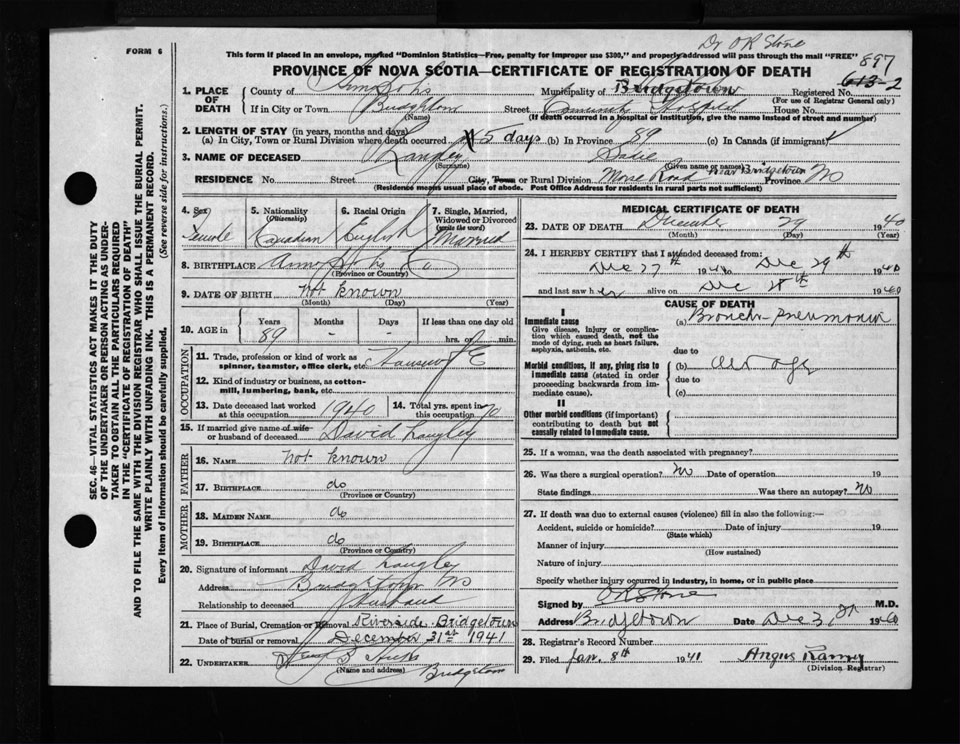 Dr OR Stone
FORM 6
This form if placed in an envelope, marked "Dominion Statistics—Free, penalty for improper use $300," and properly addressed will pass through the mail "FREE"
897
PROVINCE OF NOVA SCOTIA—CERTIFICATE OF REGISTRATION OF DEATH
613-2
1. PLACE OF DEATH
County of Municipality of Bridgetown Registered No.
(For use of Registrar General only)
If in City or Town Bridgetown Street Community Hospital House No.
(Name) (If death occurred in a hospital or institution, give the name instead of street and number)
2. LENGTH OF STAY (in years, months and days)
(a) In City, Town or Rural Division where death occurred 5 days (b) In Province 89 (c) In Canada (if immigrant)
3. NAME OF DECEASED Langley Sadie
(Surname) (Given name or names)
RESIDENCE No. Street City, Town or Rural Division Morse Road near Bridgetown Province NS
(Residence means usual place of abode. Post Office Address for residents in rural parts not sufficient)
4. Sex Female
5. Nationality (Citizenship) Canadian
6. Racial Origin English
7. Single, Married, Widowed or Divorced (write the word) Married
8. BIRTHPLACE Co
(Province or Country)
9. DATE OF BIRTH not known
(Month) (Day) (Year)
10. AGE in Years 89 Months - Days If less than one day old hrs. or min.
OCCUPATION
11. Trade, profession or kind of work as spinner, teamster, office clerk, etc.
12. Kind of industry or business, as cotton-mill, lumbering, bank, etc.
13. Date deceased last worked at this occupation 1940
14. Total yrs. spent in this occupation 70
15. If married give name of wife or husband of deceased David Langley
FATHER
16. NAME not known
17. BIRTHPLACE do
(Province or Country)
MOTHER
18. MAIDEN NAME do
19. BIRTHPLACE do
(Province or Country)
20. Signature of informant David Langley
Address Bridgetown NS
Relationship to deceased Husband
21. Place of Burial, Cremation or Removal Riverside Bridgetown
Date of burial or removal December 31st 1941
22. UNDERTAKER Hicks
(Name and address) Bridgetown
MEDICAL CERTIFICATE OF DEATH
23. DATE OF DEATH December 29 1940
(Month) (Day) (Year)
24. I HEREBY CERTIFY that I attended deceased from:
Dec 27th 1940 to Dec 29th 1940
and last saw her alive on Dec 28th 1940
CAUSE OF DEATH
I
Immediate cause
Give disease, injury or complication which caused death, not the mode of dying, such as heart failure, asphyxia, asthenia, etc.
(a) Broncho-Pneumonia
due to
Morbid conditions, if any, giving rise to immediate cause (stated in order proceeding backwards from immediate cause).
(b) Old age
due to
(c)
II
Other morbid conditions (if important) contributing to death but not causally related to immediate cause.
25. If a woman, was the death associated with pregnancy?
26. Was there a surgical operation? No Date of operation 19
State findings Was there an autopsy? No
27. If death was due to external causes (violence) fill in also the following:—
Accident, suicide or homicide? Date of injury 19
(State which)
Manner of injury
(How sustained)
Nature of injury
Specify whether injury occurred in industry, in home, or in public place
Signed by OR Stone M.D.
Address Bridgetown Date Dec 31 1940
28. Registrar's Record Number
29. Filed Jan. 8th 1941 Angus Ramey
(Division Registrar)
SEC. 46—VITAL STATISTICS ACT MAKES IT THE DUTY
OF THE UNDERTAKER OR PERSON ACTING AS UNDER-
TAKER TO OBTAIN ALL THE PARTICULARS REQUIRED
IN THE "CERTIFICATE OF REGISTRATION OF DEATH"
AND TO FILE THE SAME WITH THE DIVISION REGISTRAR WHO SHALL ISSUE THE BURIAL PERMIT.
WRITE PLAINLY WITH UNFADING INK. THIS IS A PERMANENT RECORD.
Every item of information should be carefully supplied. (See reverse side for instructions.)